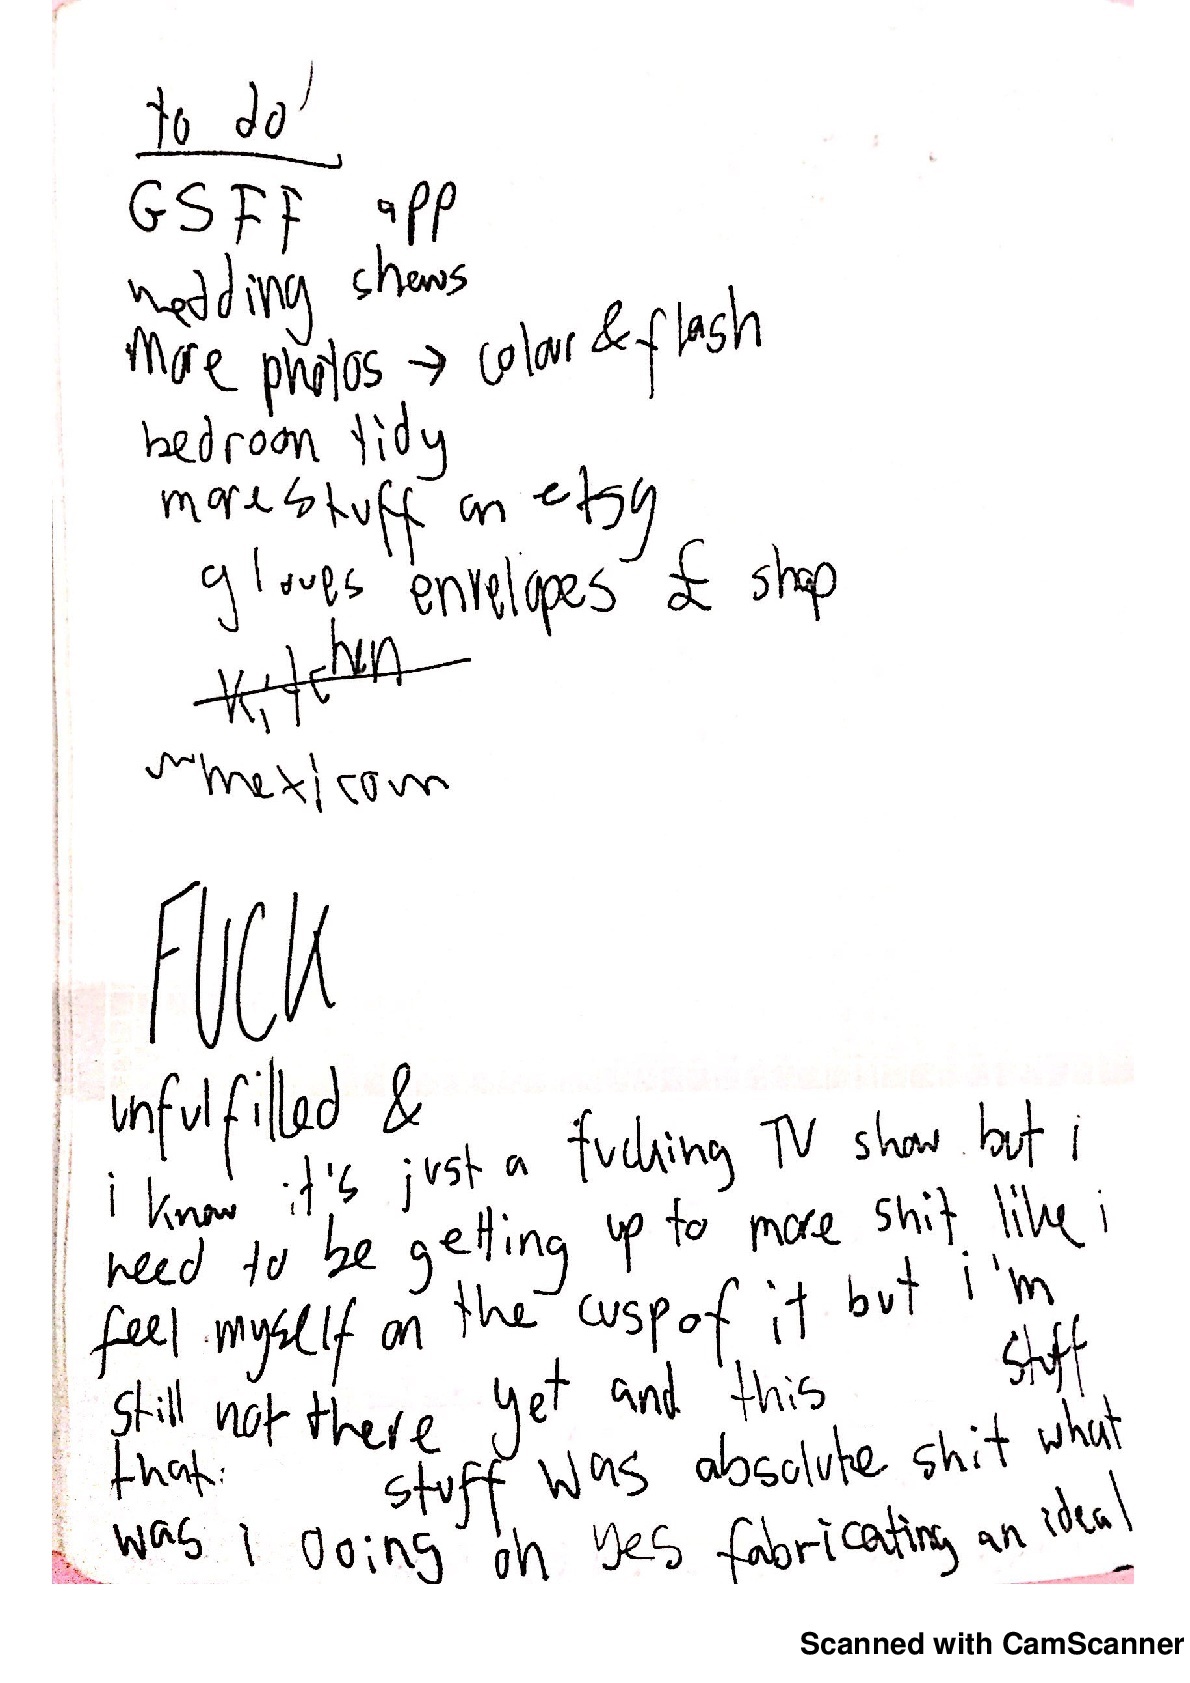 to do
GSFF app
wedding shews
More photos → colour & flash
bedroom tidy
more stuff on etsy
gloves envelopes £ shop
kitchen
mexicom
FUCK
unfulfilled &
i know it's just a fucking TV show but i
need to be getting up to more shit like i
feel myself on the cusp of it but i'm
still not there yet and this stuff
that. stuff was absolute shit what
was i doing oh yes fabricating an ideal
Scanned with CamScanner